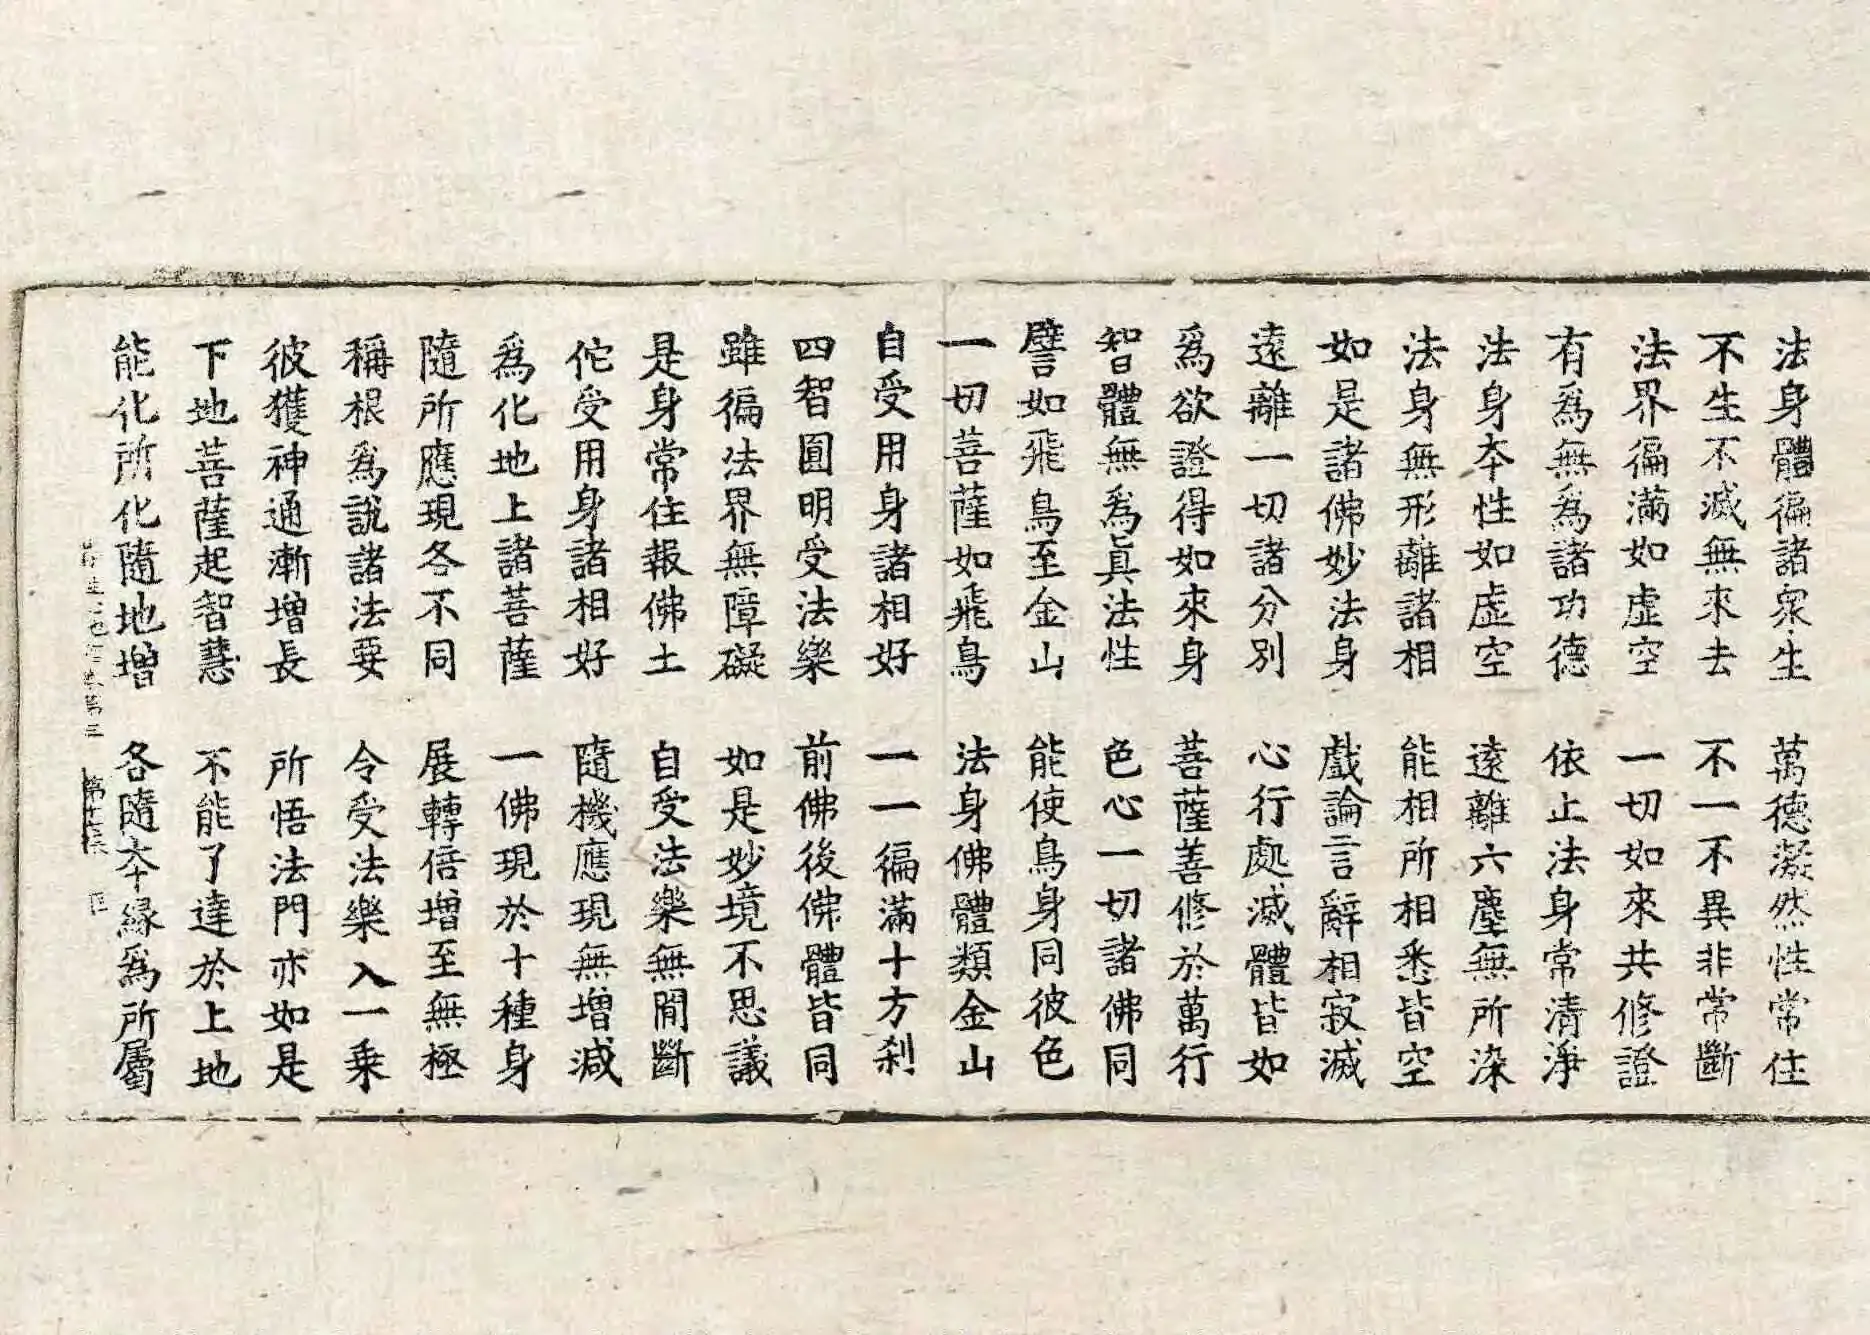 法身體徧諸衆生　萬德凝然性常住
不生不滅無來去　不一不異非常斷
法界徧滿如虛空　一切如來共修證
有爲無爲諸功德　依止法身常清淨
法身本性如虛空　遠離六塵無所染
法身無形離諸相　能相所相悉皆空
如是諸佛妙法身　戲論言辭相寂滅
遠離一切諸分別　心行處滅體皆如
爲欲證得如來身　菩薩善修於萬行
智體無爲眞法性　色心一切諸佛同
譬如飛鳥至金山　能使鳥身同彼色
一切菩薩如飛鳥　法身佛體類金山
自受用身諸相好　一一徧滿十方刹
四智圓明受法樂　前佛後佛體皆同
雖徧法界無障礙　如是妙境不思議
是身常住報佛土　自受法樂無間斷
佗受用身諸相好　隨機應現無增減
爲化地上諸菩薩　一佛現於十種身
隨所應現各不同　展轉倍增至無極
稱根爲說諸法要　令受法樂入一乗
彼獲神通漸增長　所悟法門亦如是
下地菩薩起智慧　不能了達於上地
能化所化隨地增　各隨本緣爲所屬
地　第三　第